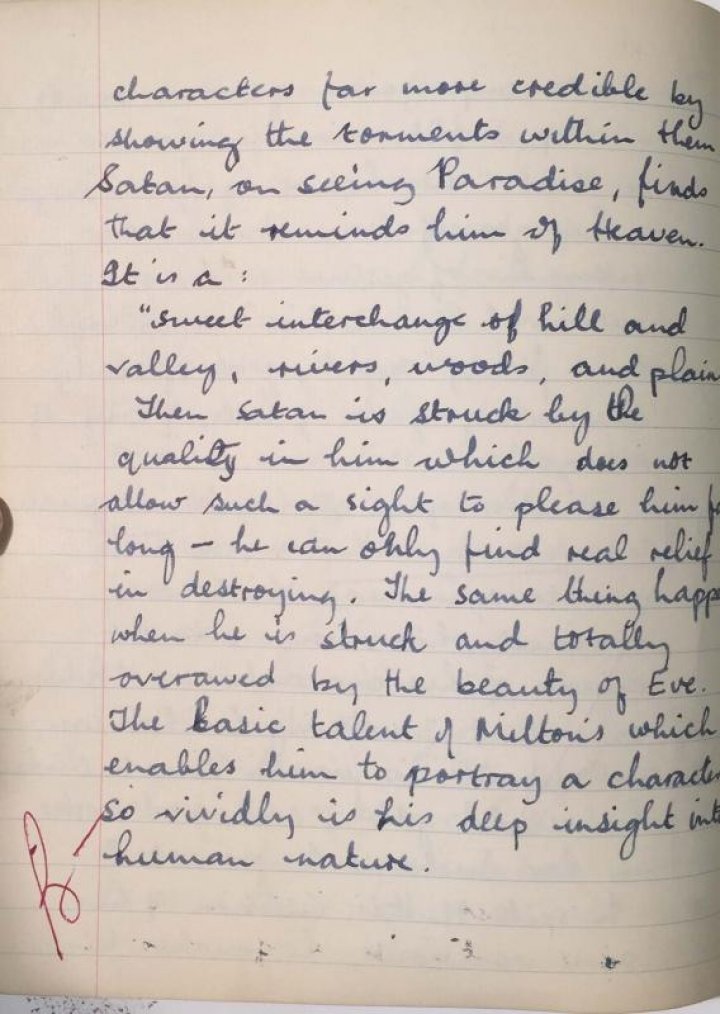 characters far more credible by
showing the torments within them
Satan, on seeing Paradise, finds
that it reminds him of Heaven.
It is a :
"sweet interchange of hill and
valley, rivers, woods, and plain
Then Satan is struck by the
quality in him which does not
allow such a sight to please him fo
long – he can only find real relief
in destroying. The same thing happe
when he is struck and totally
overawed by the beauty of Eve.
The basic talent of Milton's which
enables him to portray a character
so vividly is his deep insight into
human nature.
B-